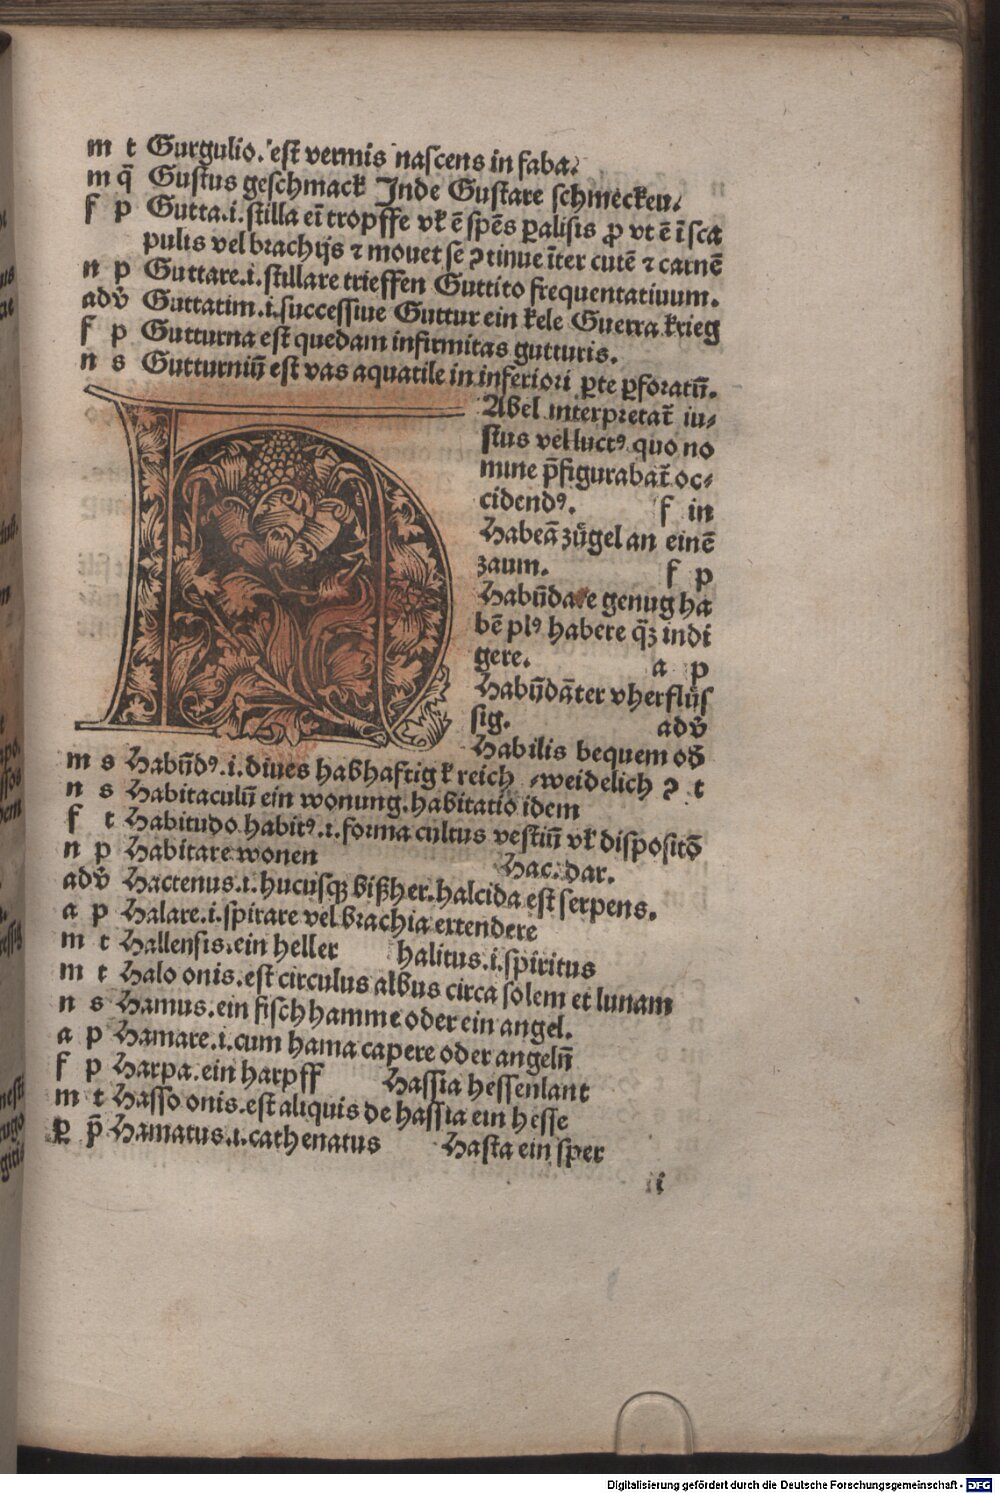 m t Gurgulio. est vermis nascens in faba.
m q̄ Gustus geschmack Inde Gustare schmecken.
f p Gutta.i. stilla eī tropffe vł ē spēs ꝑalisis ꝓ vt ē ī sca
pulis vel brachijs ⁊ mouet se ꝯtinue īter cutē ⁊ carnē
n p Guttare.i. stillare trieffen Guttito frequentatiuum.
adv̄ Guttatim.i. successiue Guttur ein kele Guerra krieg
f p Gutturna est quedam infirmitas gutturis.
n s Gutturniū est vas aquatile in inferiori ꝑte ꝑforatū.
HAbel interpretat̄ iu⸗
stus vel luctꝰ quo no
mine p̄figurabat̄ oc⸗
cidendꝰ. f in
Habeā zügel an einē
zaum. f p
Habūdare genug ha
bē plꝰ habere q̄ꝫ indi
gere. a p
Habūdāter vberflüs
sig. adv̄
Habilis bequem od̄
m s Habūdꝰ.i. diues habhaftig k reich ⸗weidelich ꝯ t
n s Habitaculū ein wonung. habitatio idem
f t Habitudo. habitꝰ.i. forma cultus vestiū vł dispositō
n p Habitare wonen Hac. dar.
adv̄ Hactenus.i. hucusqꝫ bißher. halcida est serpens.
a p Halare.i. spirare vel brachia extendere
m t Hallensis. ein heller halitus.i. spiritus
m t Halo onis. est circulus albus circa solem et lunam
n s Hamus. ein fisch hamme oder ein angel.
a p Hamare.i. cum hama capere oder angelñ
f p Harpa. ein harpff Hassia hessenlant
m t Hasso onis. est aliquis de hassia ein hesse
ꝑ p̄ Hamatus.i. cathenatus Hasta ein sper
ii
Digitalisierung gefördert durch die Deutsche Forschungsgemeinschaft - DFG